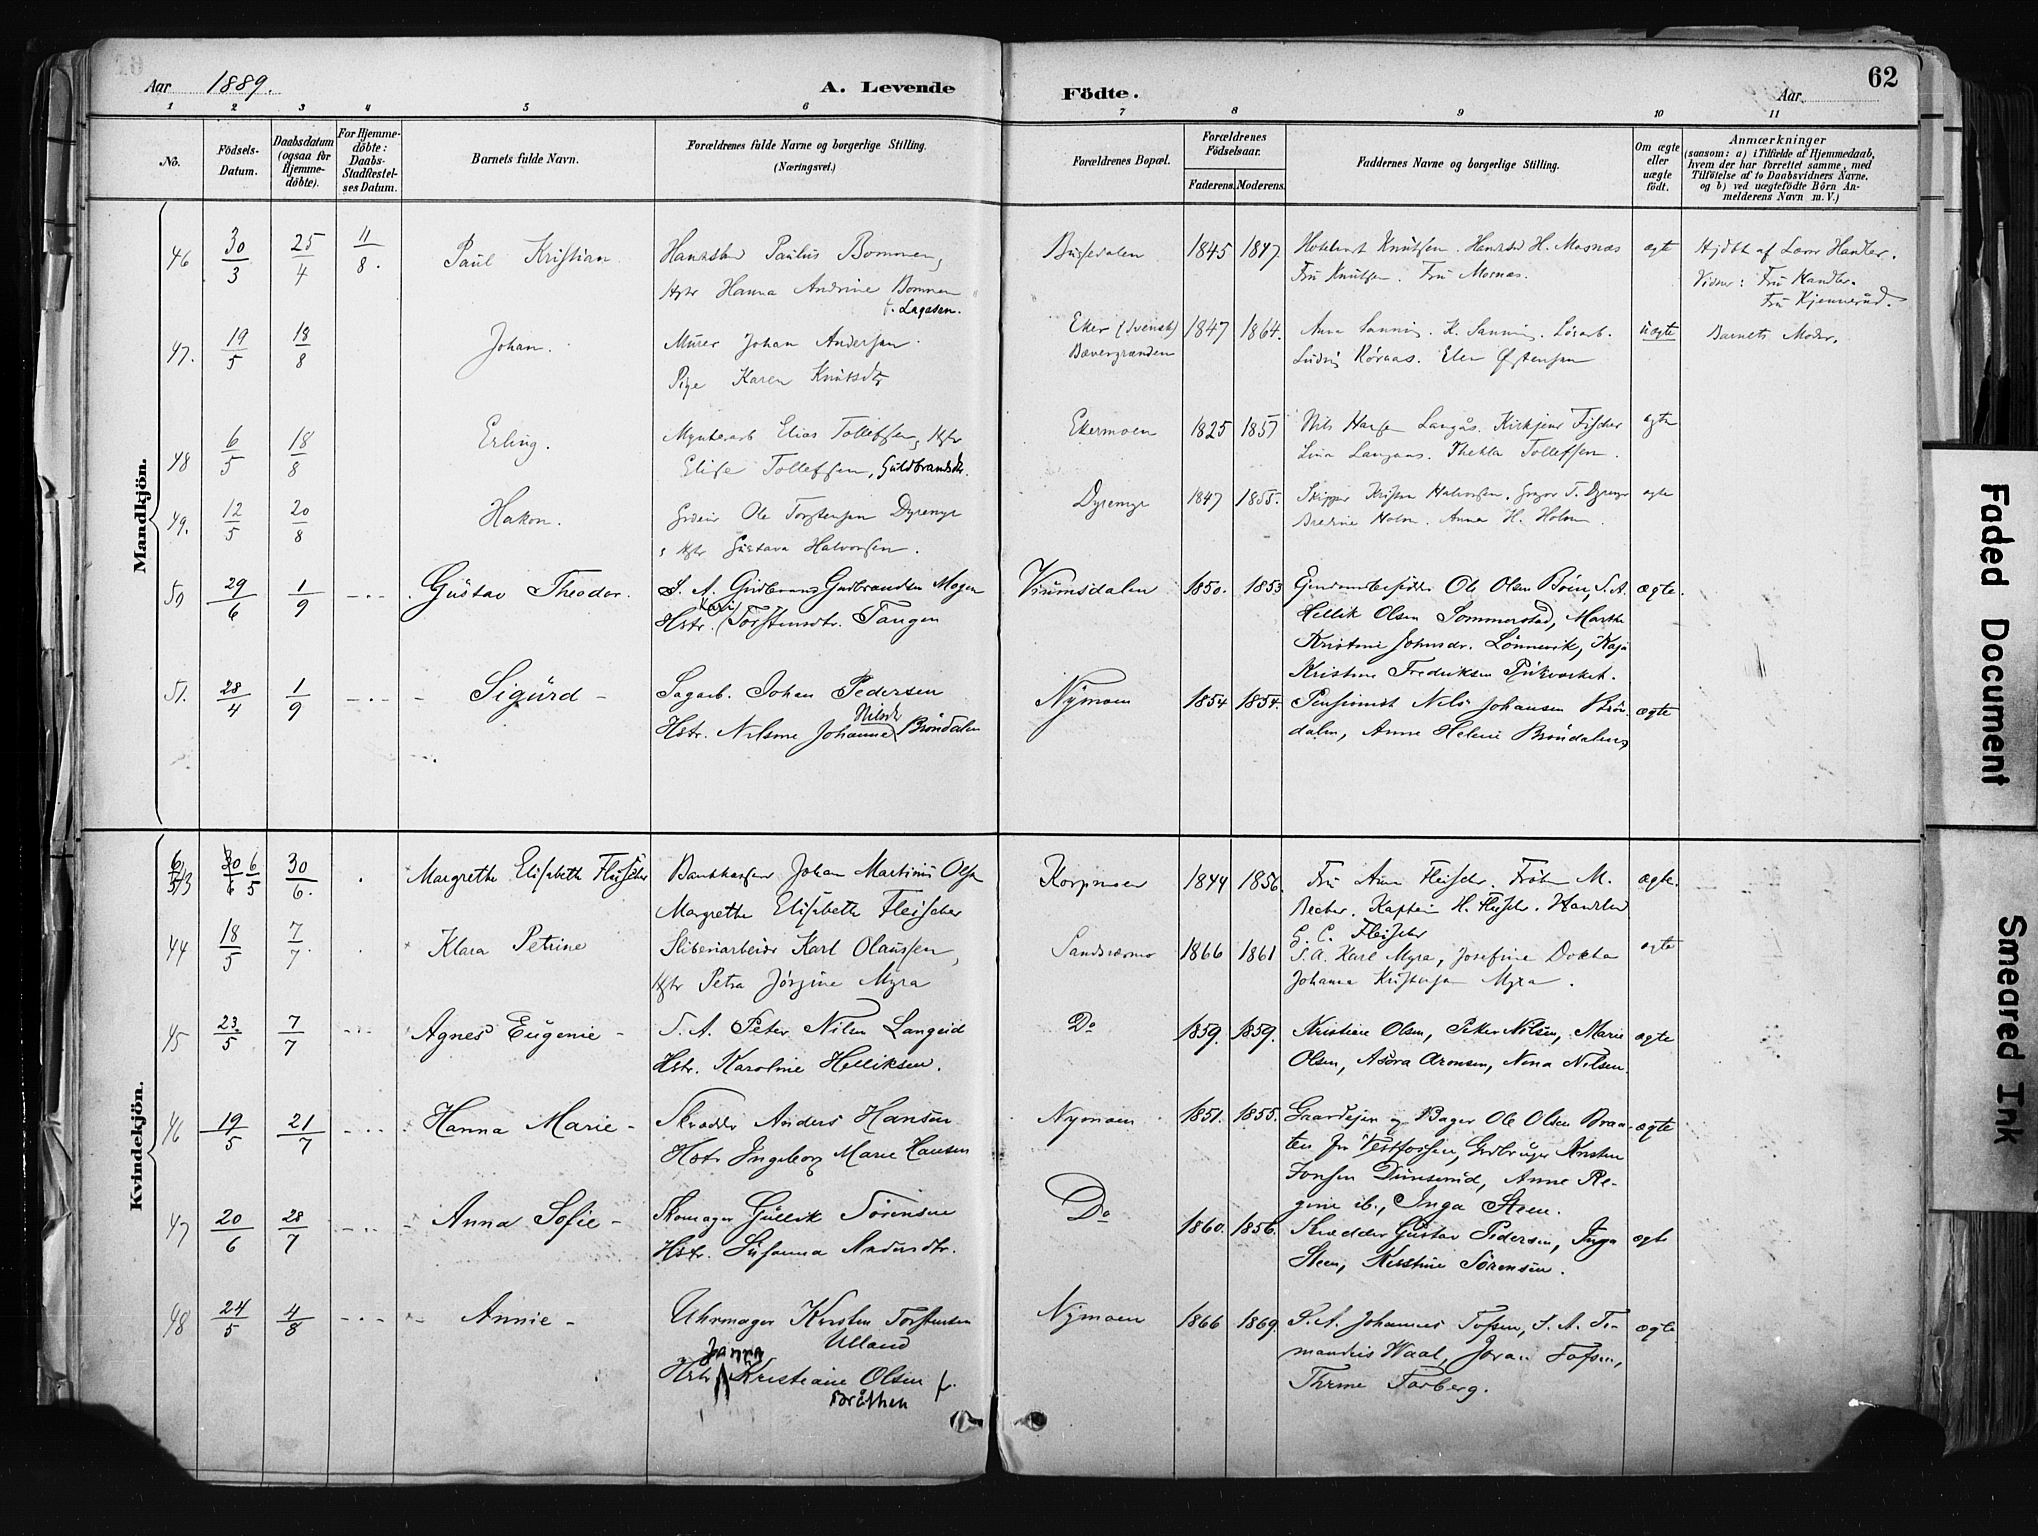 Aar 1889.
A. Levende
Födte.
Aar
62
1 2 3 4 5 6 7 8 9 10 11
No.
Födsels-Datum.
Daabsdatum (ogsaa for Hjemme-döbte).
For Hjemme-döbte: Daabs-Stadfæstel-ses Datum.
Barnets fulde Navn.
Forældrenes fulde Navne og borgerlige Stilling.
(Næringsvei.)
Forældrenes Bopæl.
Forældrenes Födselsaar.
Faderens. Moderens.
Faddernes Navne og borgerlige Stilling.
Om ægte eller uægte födt.
Anmærkninger
(saasom: a) i Tilfælde af Hjemmedaab,
hvem der har forrettet samme, med
Tilföielse af to Daabsvidners Navne.
og b) ved uægtefödte Börn An-
melderens Navn m. V.)
Mandkjön.
46 30/3 25/4 11/8. Paul Kristian Paulus Bommen, 1845 1847 Knutsen. H. Mosnæs ægte Hjdbt af Handler.
Hanna Andrine Bommen Fru Knutsen. Fru Mosnæs. Vidner: Fru Handler.
f. Lagesen. Fru Kjennerud.
47. 19/5 18/8 Johan. Murer Johan Andersen Eker (svensk) 1847 1864. Anna uægte Barnets Moder.
Pige Karen Knutsdtr Bævergrænden Ludvig Elen Østensen
48 6/5 18/8 Erling. Elias Tollefsen, Hstr Ekermoen 1825 1857 Nils Hansen Langås. Fischer ægte
Elise Tollefsen, Guldbrandsdtr. Lina Langaas. Thekla Tollefsen.
49. 12/5 20/8 Hakon. Ole Torstensen Dyremyr Dyremyr 1847 1855. Skipper Kristen Halvorsen. Gregor T. Dyremyr ægte
Hstr Gustava Halvorsen. Holm. Anna H. Holm.
50 29/6 1/9 Gustav Theodor. S. A. Gudbrand Gudbrandsen Mogen Vrumsdalen 1850. 1853 Ole Olsen Böen, S. A. ægte.
Hstr. Kari Torstensdtr. Tangen Hellik Olsen Sommerstad, Marthe
Kristine Johnsdr. Lönnevik, Kaja
Kristine Fredriksen
51. 28/4 1/9 Sigurd Sagarb. Johan Pedersen Nymoen 1854 1854. Pensionist Nils Johansen Brön- ægte
Hstr. Nilsine Johanne Nilsdr Bröndalen dalen, Anne Helene Bröndalen
Kvindekjön.
43 30/6 6/5 30/6. Margrethe Elisabeth Fleischer Johan Martinus Olsen Korpmoen 1844 1856. Fru Anna Fleischer. Fröken M. ægte.
Margrethe Elisabeth Fleischer Becker. Kaptein H. Fleischer. Handler
G. C. Fleischer
44 18/5 7/7. Klara Petrine Sliberiarbeider Karl Olaussen, Sandsværmo 1866 1861 S. A. Karl Myra, Josefine Dokka ægte
Hstr Petra Jörgine Myra Johanna Kristensen Myra.
45 23/5 7/7 Agnes Eugenie S. A. Peter Nilsen Langeid Do 1859. 1859. Kristiane Olsen, Peter Nilsen, Marie ægte
Hstr. Karoline Helliksen. Olsen, Aronsen, Nona Nilsen.
46 19/5 21/7 Hanna Marie Skrædder Anders Hansen Nymoen 1851. 1855. Gaardejer og Bager Ole Olsen Braa- ægte
Hstr Ingeborg Marie Hansen ten fra Vestfossen, Gudbr Kristen
Jonsen Dunserud, Anne Re-
gine ib., Inga Steen.
47 20/6 28/7 Anna Sofie Skomager Gullik Sörensen Do 1860. 1856. Skrædder Gustav Pedersen, Inga ægte
Hstr. Susanna Andersdtr. Steen, Kristine Sörensen.
48 24/5 4/8 Annie Uhrmager Kristen Torstensen Nymoen 1866 1869. S. A. Johannes Tofsen, S. A. To- ægte
Ulland manders Waal, Joran Tofsen,
Hstr Janna Kristiane Olsen f. Thrine Farberg.
Bråthen
Faded Document
Smeared Ink